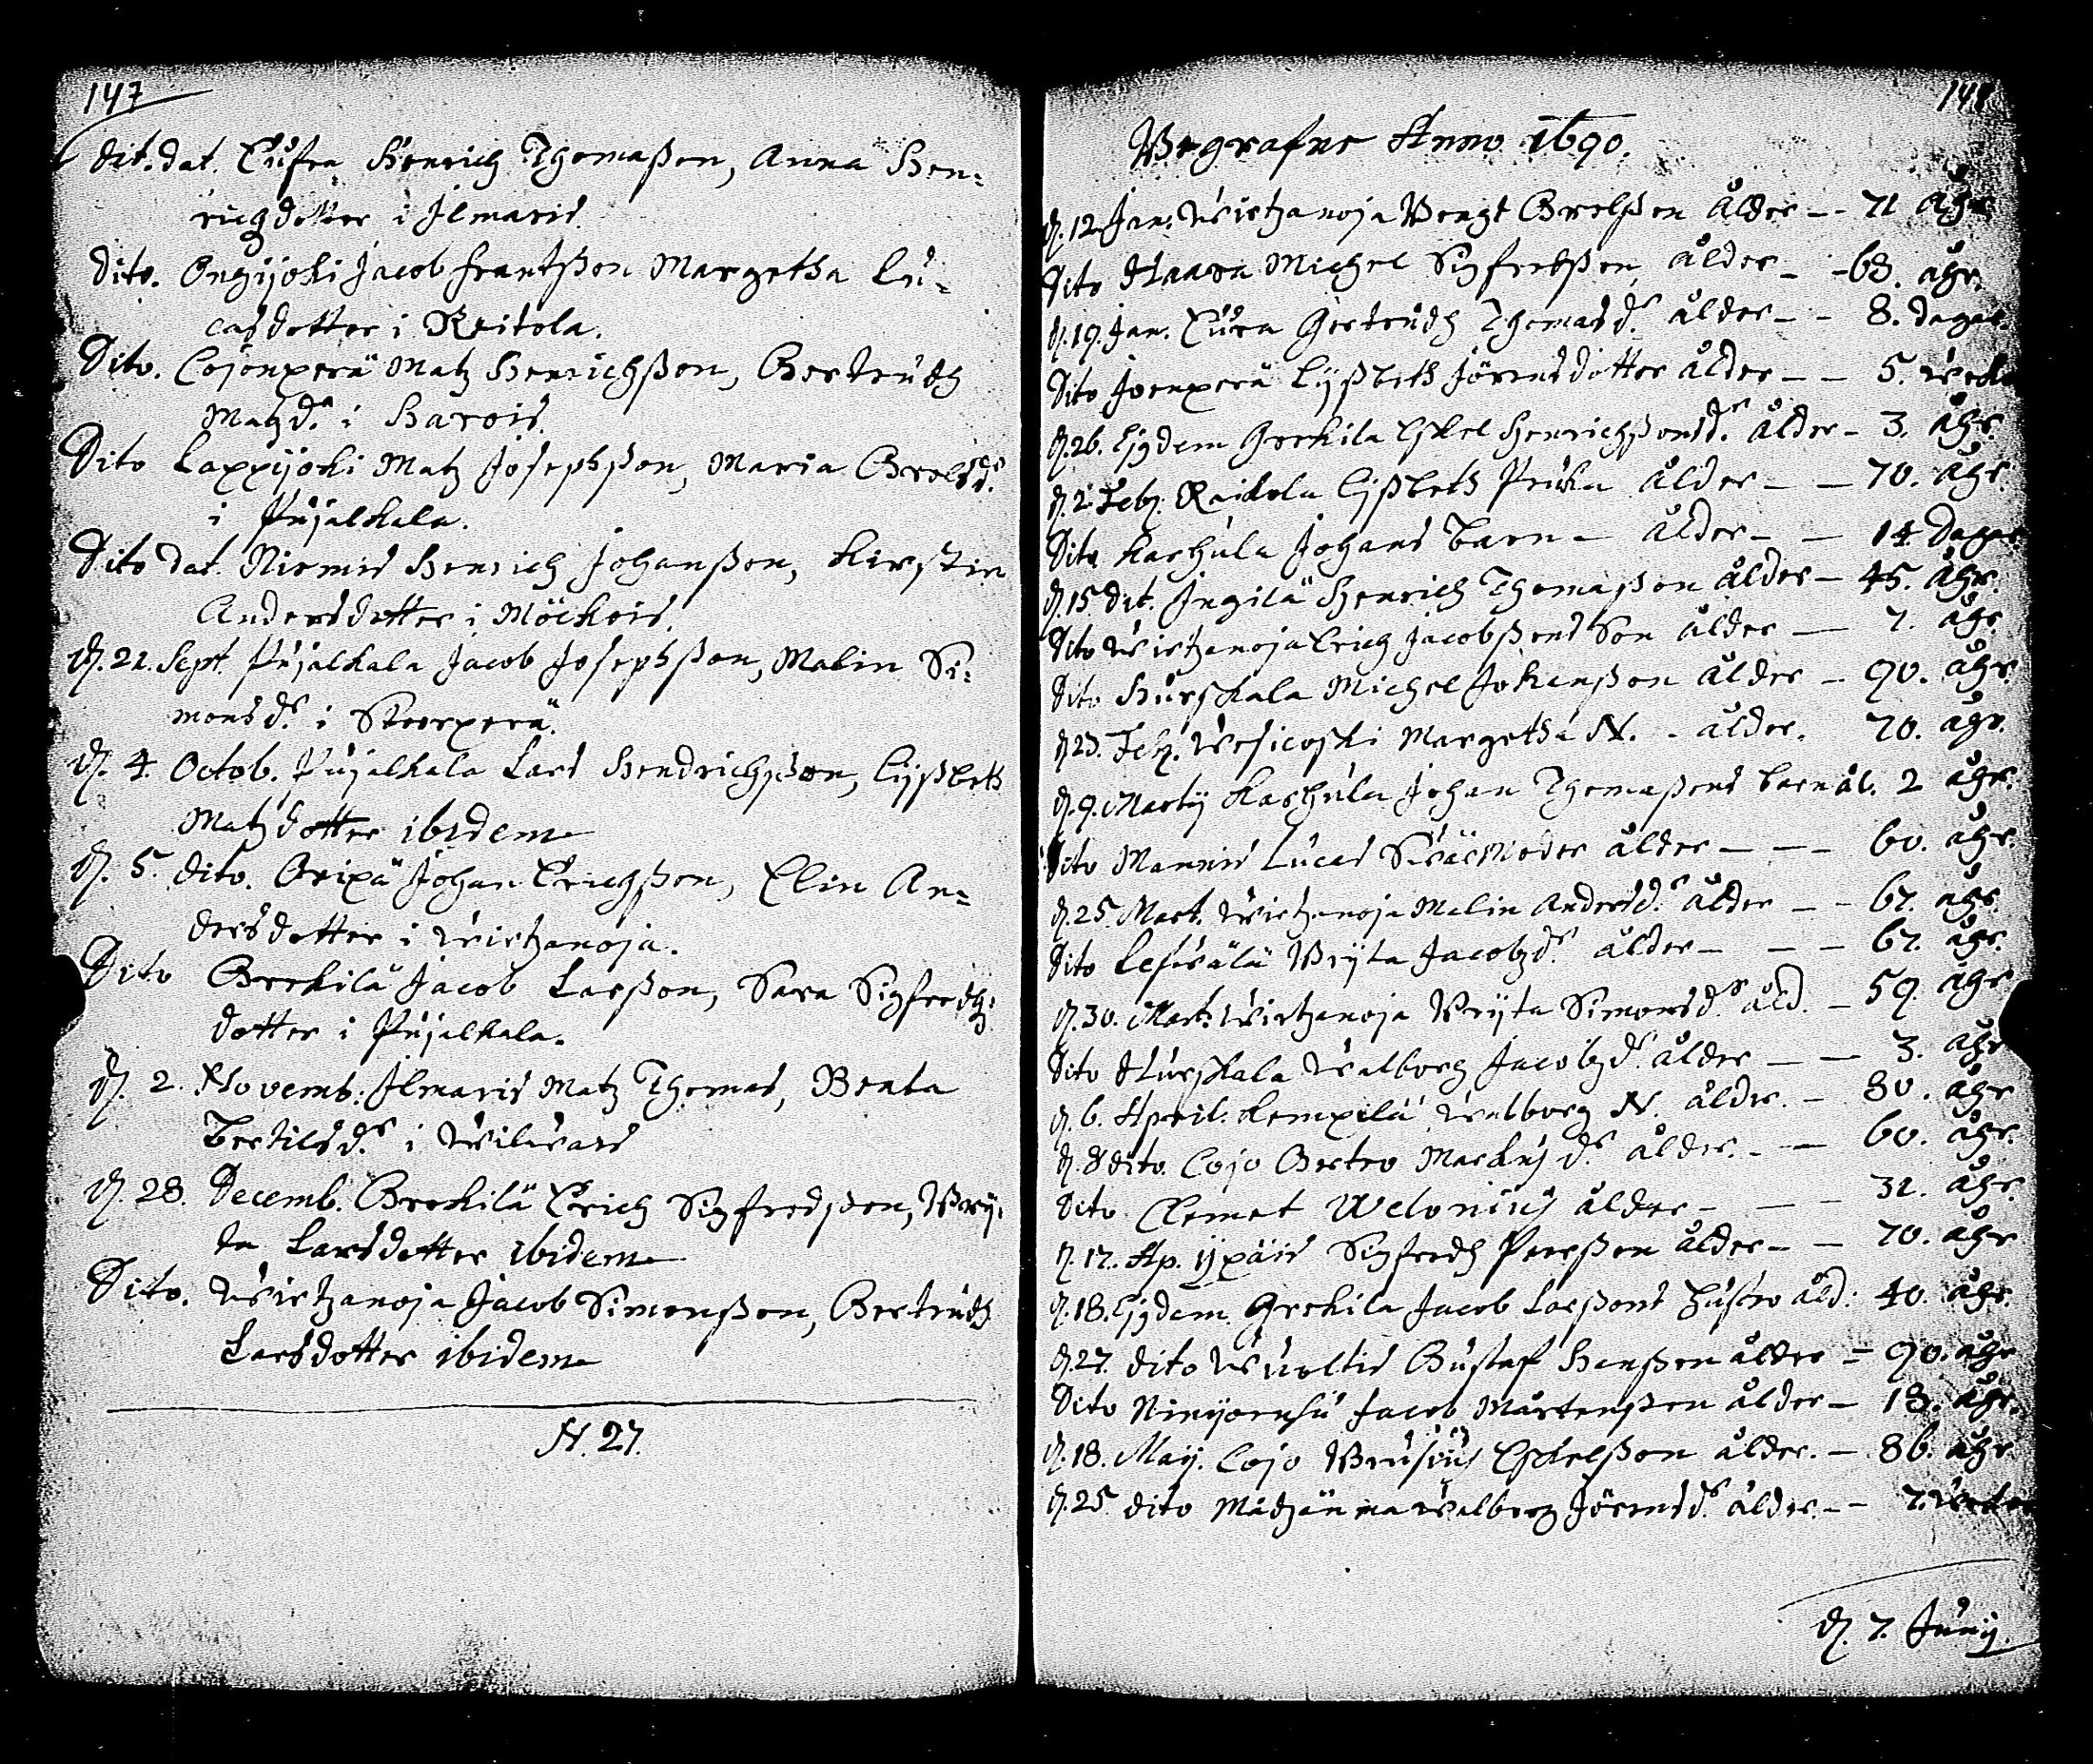 147
dit. dat. Lusra Henrich Thomaßon, Anna Hen=
richdotter i Jlmaris.
Dito. Ongijoki Jacob Frantßon Margetha Lu=
casdotter i Reitola.
Dito. Cojonperä Matz Henrichßon, Gertrudh
Matzd.r i Harois.
Dito Lappijoki Matz Josephßon, Maria Grelsd.r
i Pujalkala.
Dito dat. Niemis Henrich Johanßon, Kirstin
Andersdotter i Möckois.
d. 21. Sept. Pujalkala Jacob Josephßon, Malin Si=
monsd.r i Koorperä.
d. 4. Octob. Pujalkala Lars Hendrichßon, Lijßbeth
Matzdotter ibidem
d. 5. dito. Oripä Johan Erichßon, Elin An=
dersdotter i Wirtzanoja.
Dito Grekilä Jacob Larßon, Sara Sigfredz
dotter i Pujalkala.
d. 2. Novemb: Jlmaris Matz Thomas, Benta
Bertilsd.r i Wilvais
d. 28. Decemb. Grekilä Erich Sigfredßon, Brij=
ta Larsdotter ibidem
Dito. Wirtzanoja Jacob Simonßon, Gertrudh
Larsdotter ibidem
N. 27.
148
Begrafne Anno 1690.
d. 12. Jan: Wirtzanoja Bengt Grelßon ålder -- 71 åhr
Dito Haara Michel Sigfredßon ålder -- 68. åhr.
d. 19. Jan. Lura Gertrudh Thomasd.r ålder -- 8. dagar.
Dito Joenperä Lijßbeth Jörensdotter ålder -- 5. weck
d. 26. Ejgdem Grekila Eskel Henrichßonsd.r ålder - 3. åhr.
d. 2. Feb. Raikola Lijßbeth Pruka ålder -- 70. åhr.
Dito Karhula Johans barn - ålder -- 14 dagar
d. 15 dit. Jngilä Henrich Thomaßon ålder - 45. åhr.
Dito Wirtzanoja Erich Jacobßons Son ålder -- 7. åhr
Dito Hurskala Michel Johanßon ålder - 90. åhr.
d. 23. Feb. Wesicoski Margetha N. - ålder. 70. åhr.
d. 9. Martij Karhula Johan Thomaßons barn ål. 2 åhr.
Dito Mannis Lucas Swärmoder ålder --- 60. åhr.
d. 25. Mart. Wirtzanoja Malin Andersd.r ålder -- 67. åhr.
Dito Lefwälä Brijta Jacobzd.r ålder --- 67. åhr.
d. 30. Mart. Wirtzanoja Brijta Simonsd.r åld. - 59 åhr
Dito Hurskala Walborg Jacobzd.r ålder -- 3. åhr
d. 6. April. Kempilä Walborg N. ålder. - 80. åhr
d. 8 dito. Cojo Gertro Markusd.r ålder. -- 60. åhr.
Dito Clemet Welonius ålder --- 31. åhr.
d. 17. Ap. Ypäis Sigfredh Perßon ålder -- 70. åhr
d. 18. Ejgdem Grekila Jacob Larßons hustro åld: 40. åhr.
d. 27. dito Wuoltis Gustaf Hanßon ålder - 90. åhr
Dito Nimjoensu Jacob Mårtenßon ålder - 13. åhr.
d. 18. Maij. Cojo Brusius Eskelßon ålder. - 86. åhr
d. 25 dito Mätzänma Walborg Jörensd.r ålder. -- 7. weckor
d. 7. Junij.